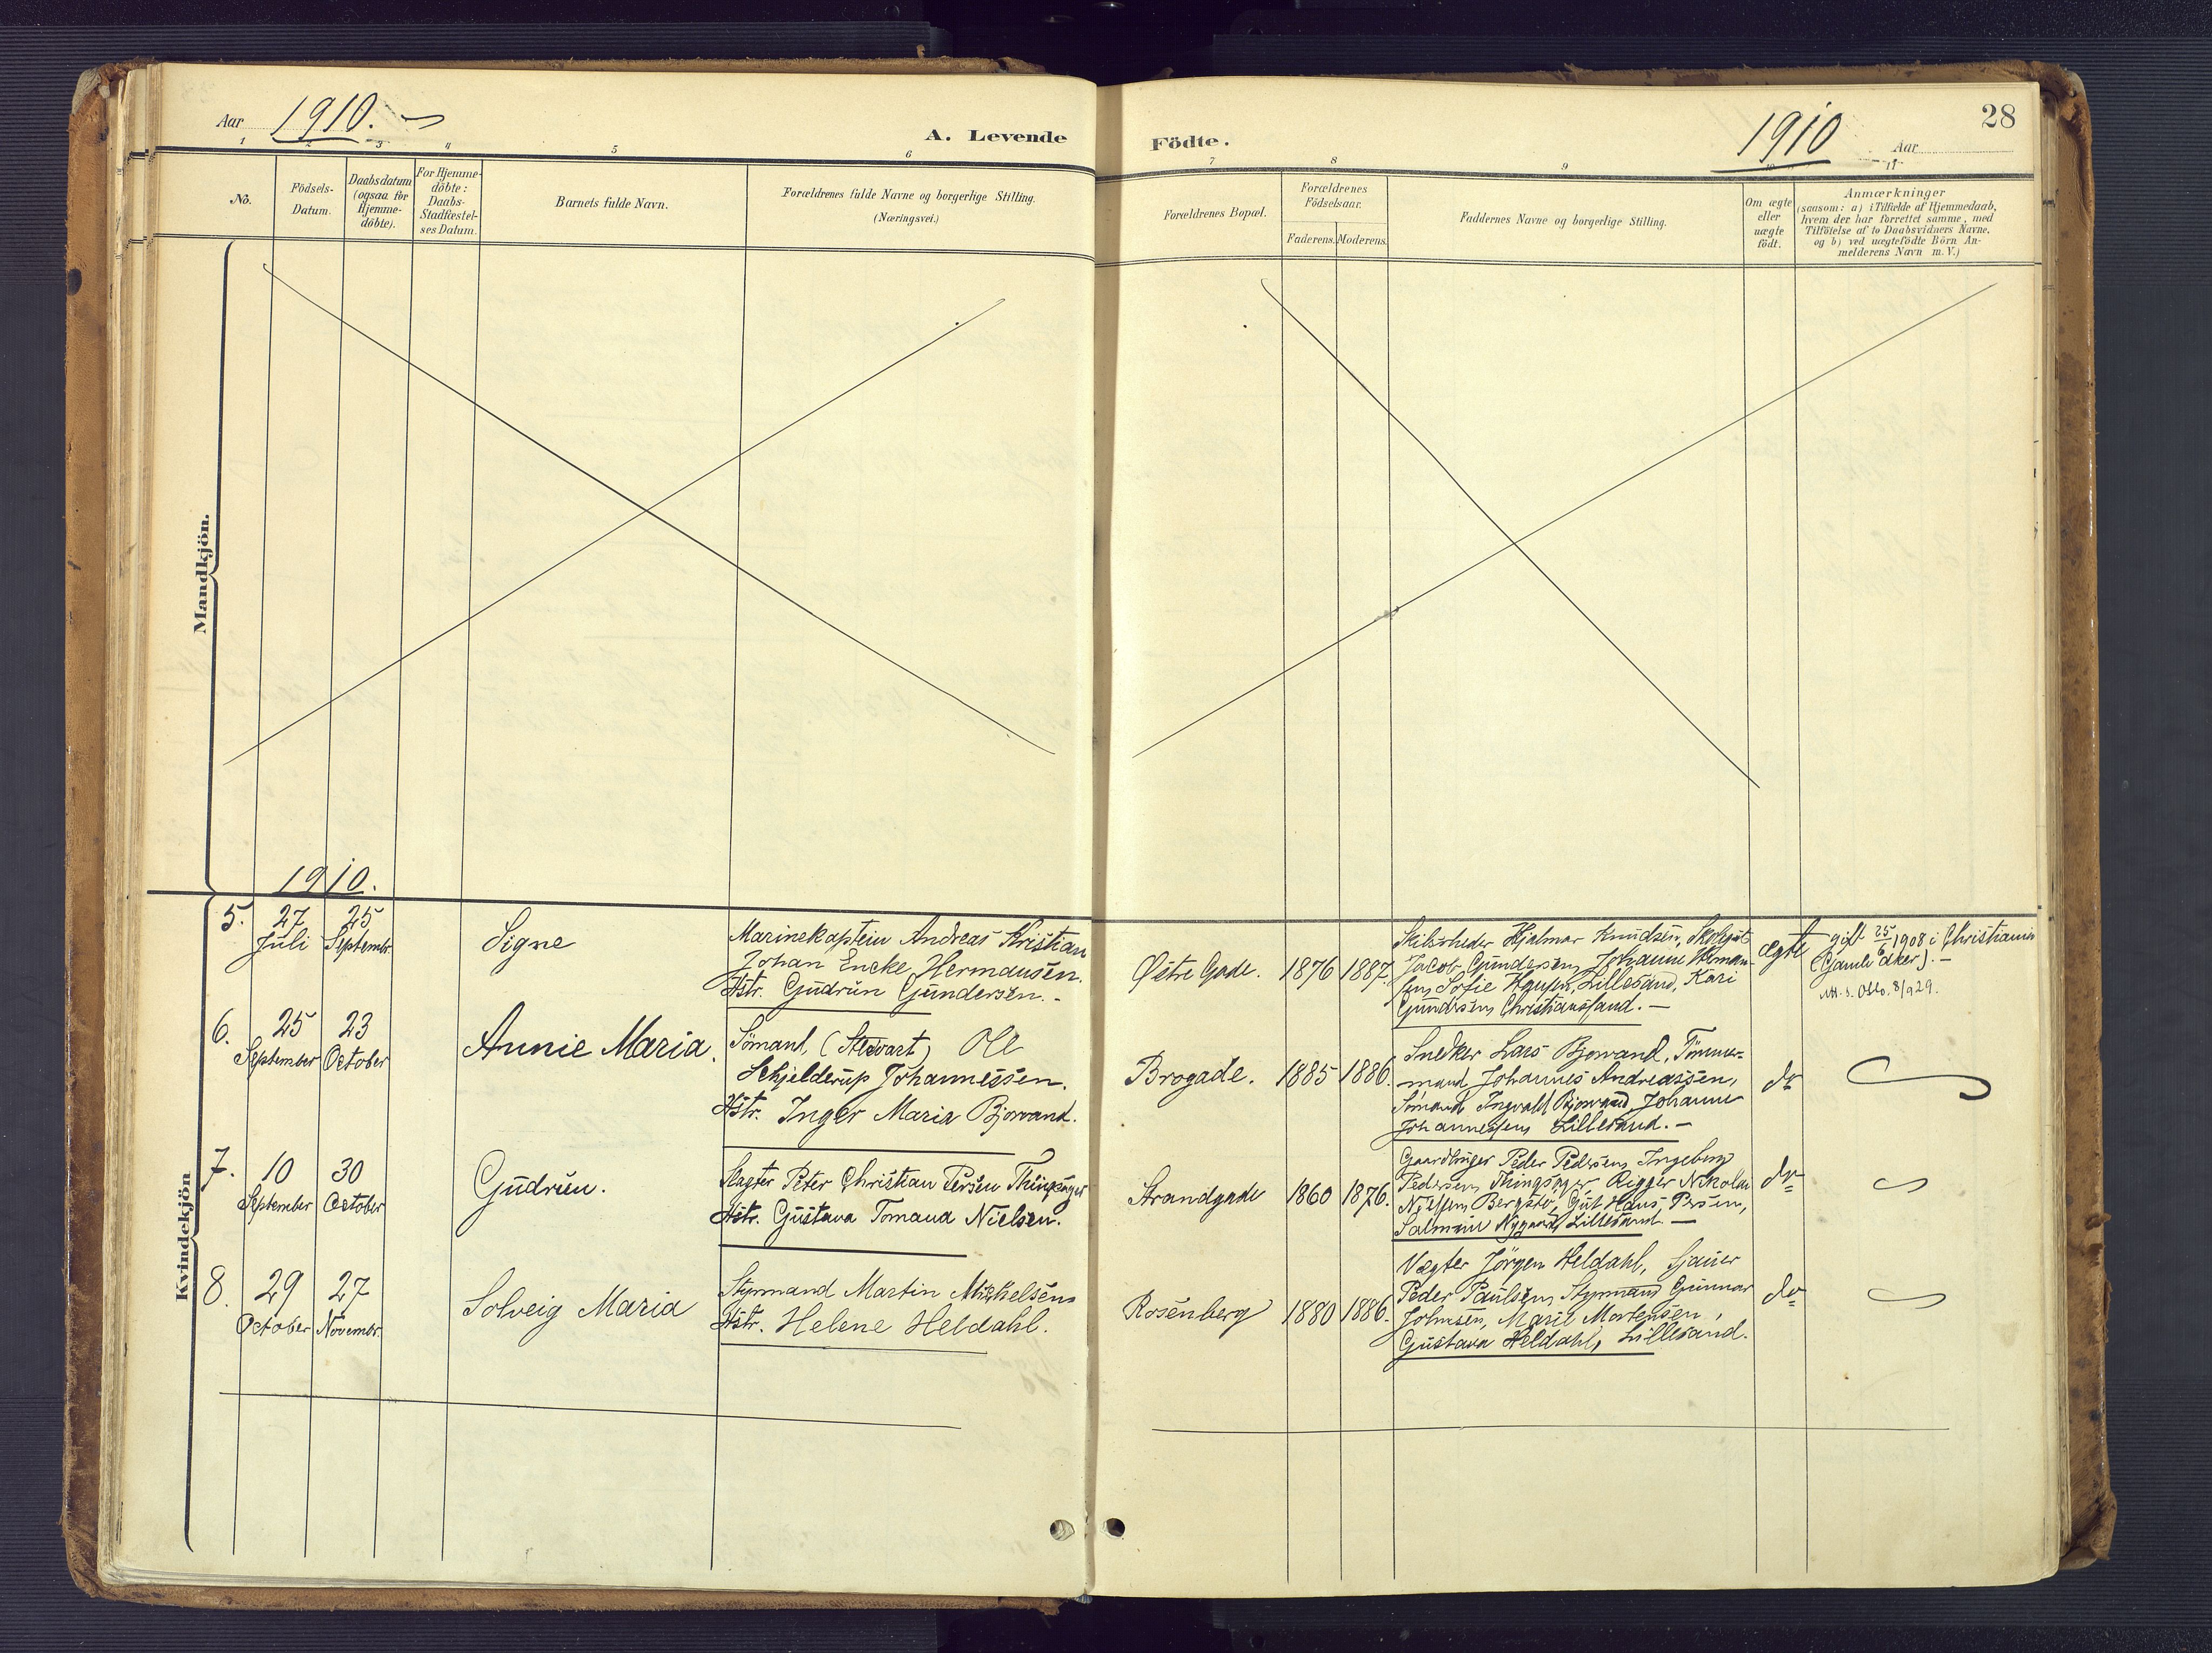 Aar 1910.
A. Levende
Födte.
1910 Aar
28
1 2 3 4 5 6 7 8 9 10 11
No.
Födsels-
Datum.
Daabsdatum
(ogsaa for
Hjemme-
döbte).
For Hjemme-
döbte:
Daabs-
Stadfæstel-
ses Datum.
Barnets fulde Navn.
Forældrenes fulde Navne og borgerlige Stilling.
(Næringsvei.)
Forældrenes Bopæl.
Forældrenes
Födselsaar.
Faderens. Moderens.
Faddernes Navne og borgerlige Stilling.
Om ægte
eller
uægte
födt.
Anmærkninger
(saasom: a) i Tilfælde af Hjemmedaab,
hvem der har forrettet samme, med
Tilföielse af to Daabsvidners Navne,
og b) ved uægtefödte Börn An-
melderens Navn m. V.)
Mandkjön.
1910.
Kvindekjön
5.
27
Juli
25
Septembr.
Signe
Marinekaptein Andreas Kristian
Johan Encke Hermansen.
Hstr. Gudrun Gundersen.
Østre Gade.
1876 1887.
Hjalmar Knudsen,
Jacob Gundersen, Johanne Herman-
sen, Sofie Hansen, Lillesand, Kari
Gundersen, Christianssand. —
ægte
gift 25/6 1908 i Christiania
(Gamle Aker). —
8/929.
6.
25
September
23
October
Annie Maria.
Sömand, (Stewart) Ole
Schjelderup Johannessen.
Hstr. Inger Maria Bjorvand.
Brogade.
1885 1886.
Snedker Lars Bjorvand, Tömmer-
mand Johannes Andreassen,
Sömand Ingvald Bjorvand, Johanne
Johannessen, Lillesand. —
do
7.
10
September
30
October
Gudrun.
Slagter Peter Christian Persen Thingsager
Hstr. Gustava Tomana Nielsen.
Strandgade
1860 1876.
Gaardbruger Peder Pedersen, Ingeborg
Pedersen, Thingsager, Rigger Nikolai
Nielsen, Bergstö, Gut Hans Persen,
Nygaard, Lillesand —
do
8.
29
October
27
Novembr.
Solveig Maria
Styrmand Martin Mikkelsen
Hstr. Helene Heldahl.
Rosenberg
1880 1886.
Vægter Jörgen Heldahl, Sjauer
Peder Paulsen, Styrmand Gunnar
Johnsen, Marie Mortensen,
Gustava Heldahl, Lillesand.
do